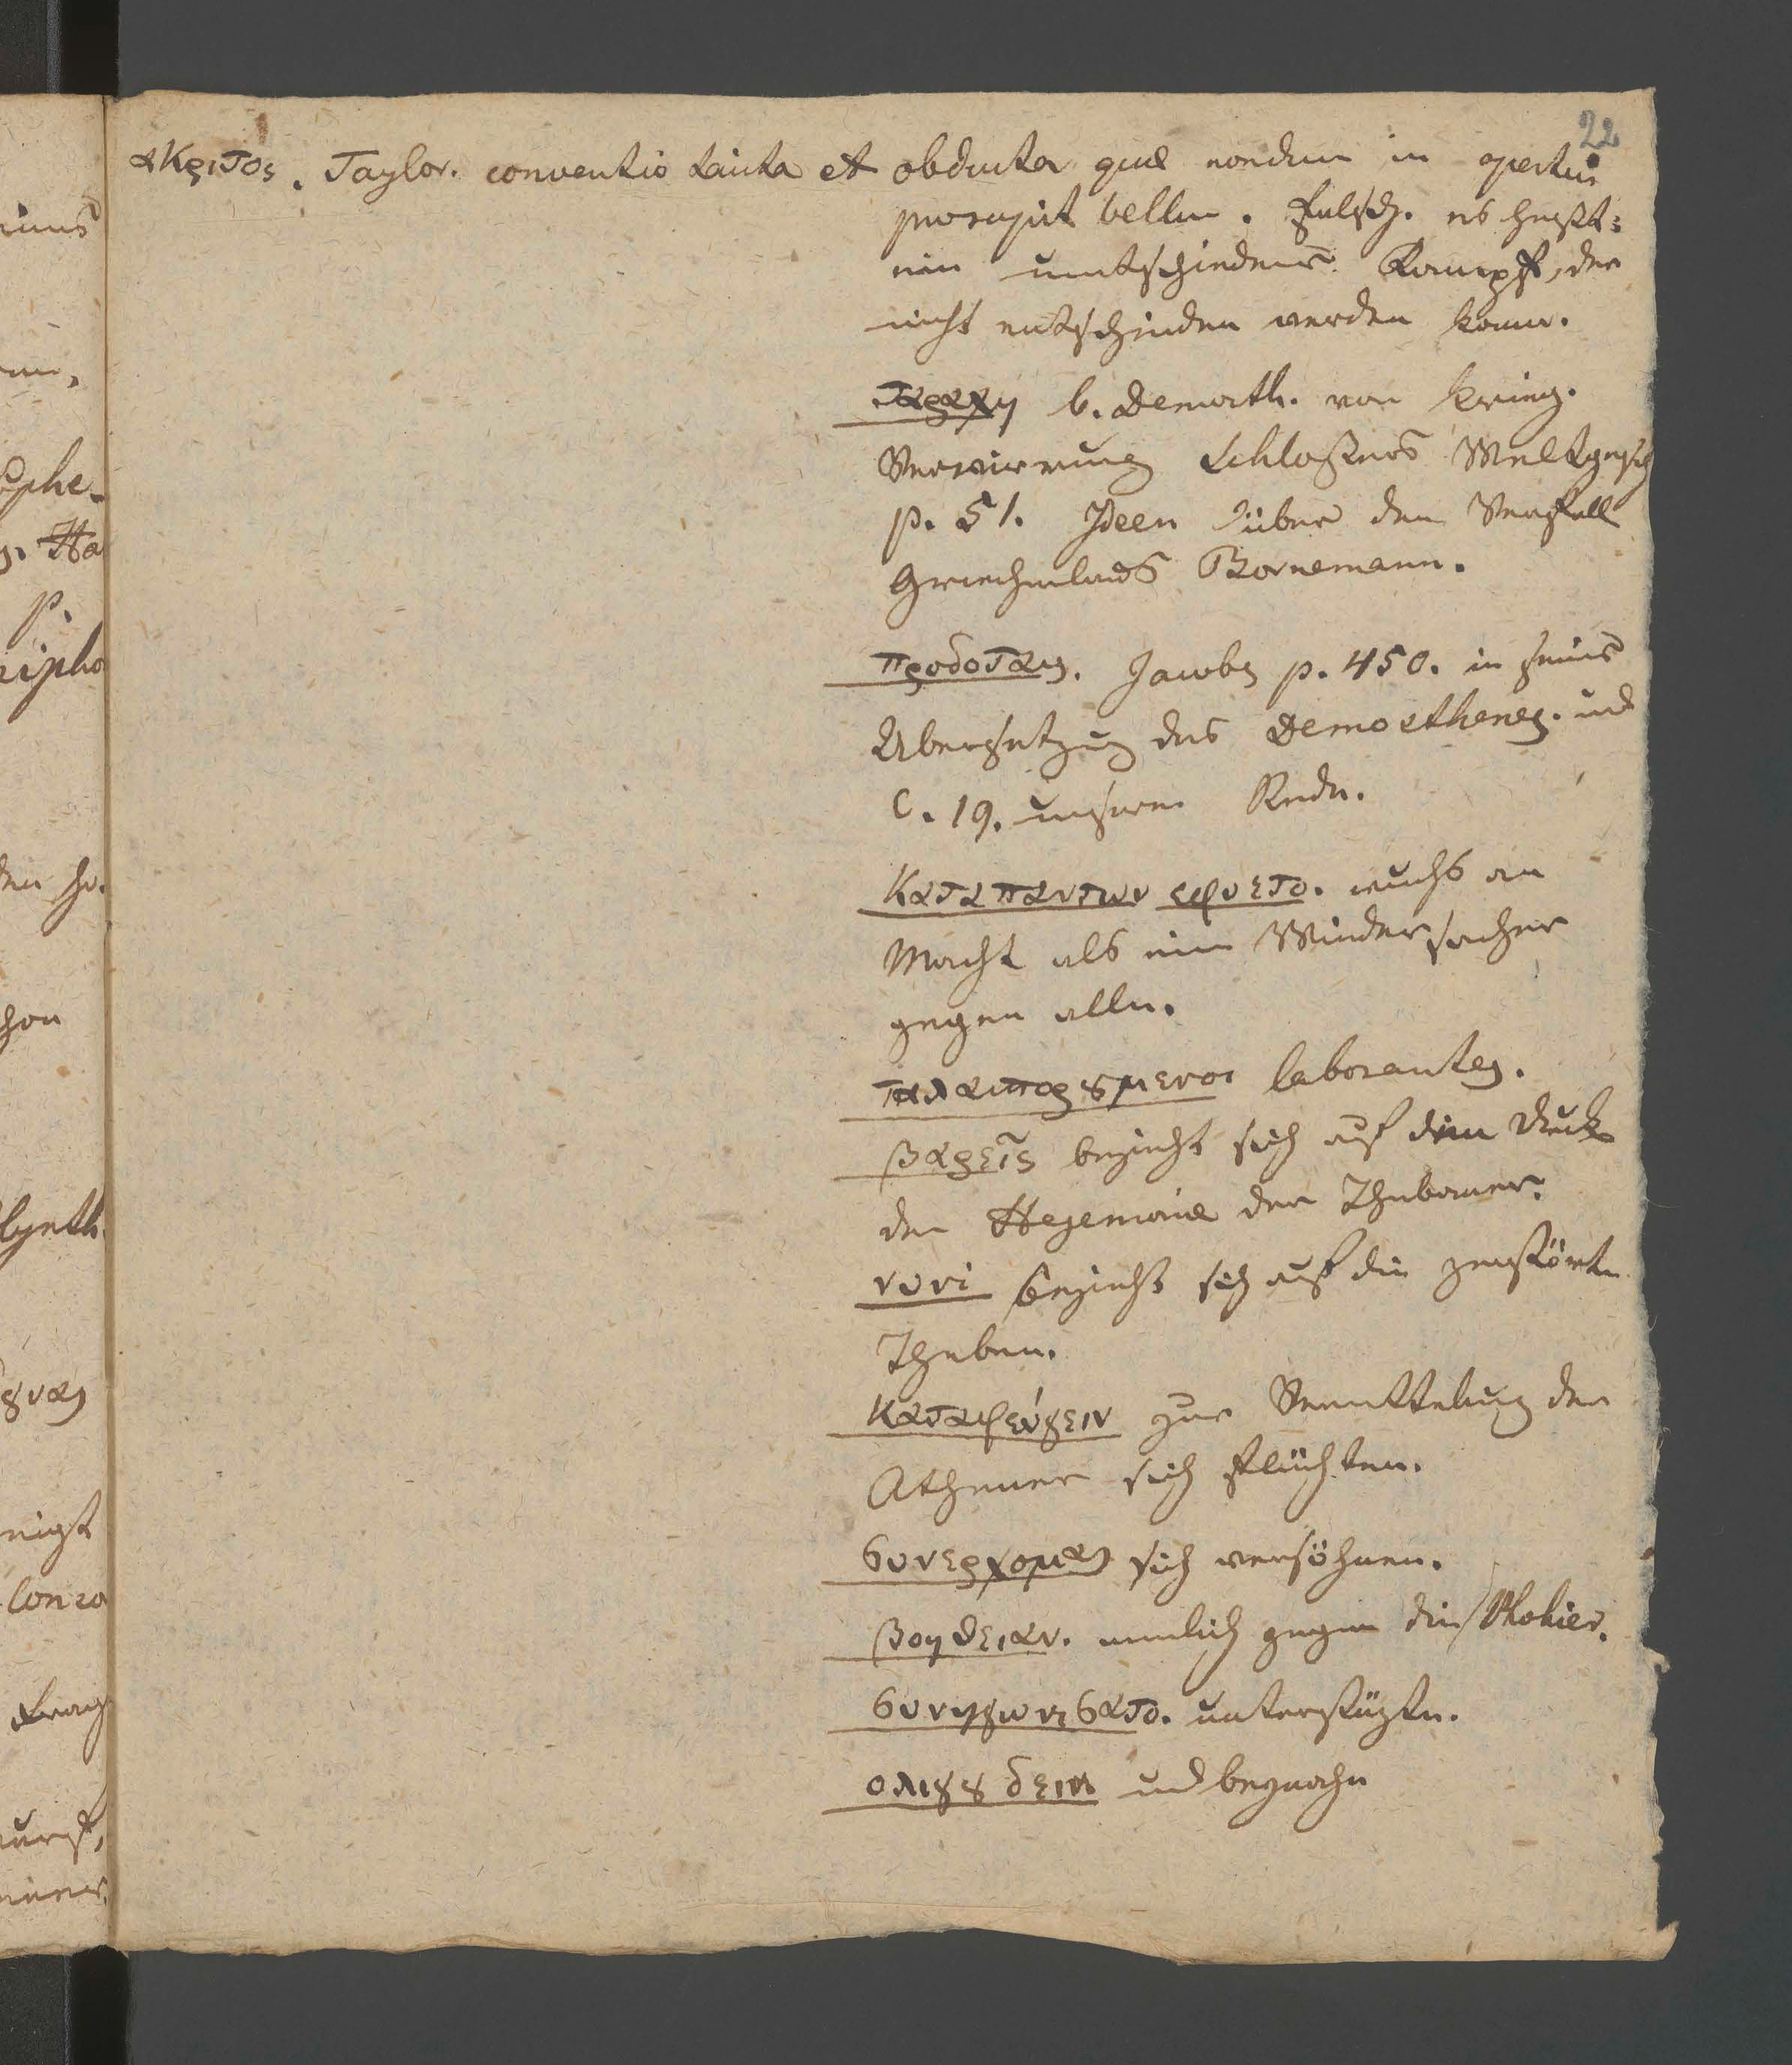 22
ακριτος. Taylor. conventio tacita et obducta quae nondum in apertum
prorupit bellum. Falsch. es heißt:
ein unentschiedener Kampf, der
nicht entschieden werden kann.
ταραχη b. Demosth. von Krieg.
Verwirrung Schloßers Weltgesch
p. 51. Ideen über den Verfall
Griechenlands Bornemann.
προδοται. Jacobs p. 450. in seiner
Ubersetzung des Demosthenes. und
C. 19. unserer Rede.
κατα παντων εφυετο. wuchs an
Macht als ein Widersacher
gegen alle.
ταλαιπορȣμενοι laborantes.
βαρεῖς bezieht sich auf den Druck
der Hegemonie der Thebaner.
νυνὶ bezieht sich auf die zerstörte
Theben.
καταφεύγειν zur Vermittelung der
Athener sich flüchten.
συνερχομαι sich versöhnen.
βοηθειαν. nemlich gegen die Phokier.
συνηγωνισατο. unterstüzte.
ολιγȣ δειν und beynahe
uns
phe-
Ha
p.
ripho
den
hon
lynth.
ȣναι